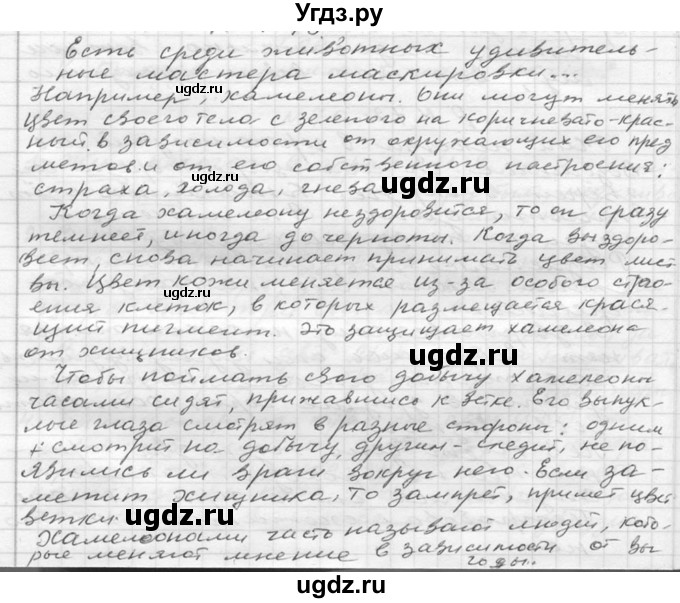 Угдз.ру
Есть среди животных удивитель-
ные мастера маскировки...
Например, хамелеоны. Они могут менять
цвет своего тела с зеленого на коричневато-крас-
ный в зависимости от окружающих его пред
метов и от его собственного настроения:
страха, холода, гнева
Когда хамелеону нездоровится, то он сразу
темнеет, иногда до черноты. Когда выздоро-
веет, снова начинает принимать цвет лист
вы. Цвет кожи меняется из-за особого строе-
ения клеток, в которых размещается крася-
щий пигмент. Это защищает хамелеона
от хищников.
Чтобы поймать свою добычу хамелеоны
часами сидят, прижавшись к ветке. Его выпук-
лые глаза смотрят в разные стороны: одним
смотрит на добычу, другим - следит, не по-
явились ли враги вокруг него. Если за-
метит хищника, то замрет, примет цвет
ветки.
Хамелеонами часть называют людей, кото-
рые меняют мнение в зависимости от вы
годы.
ugdz.ru
ugdz.ru
ugdz.ru
ugdz.ru
ugdz.ru
ugdz.ru
ugdz.ru
ugdz.ru